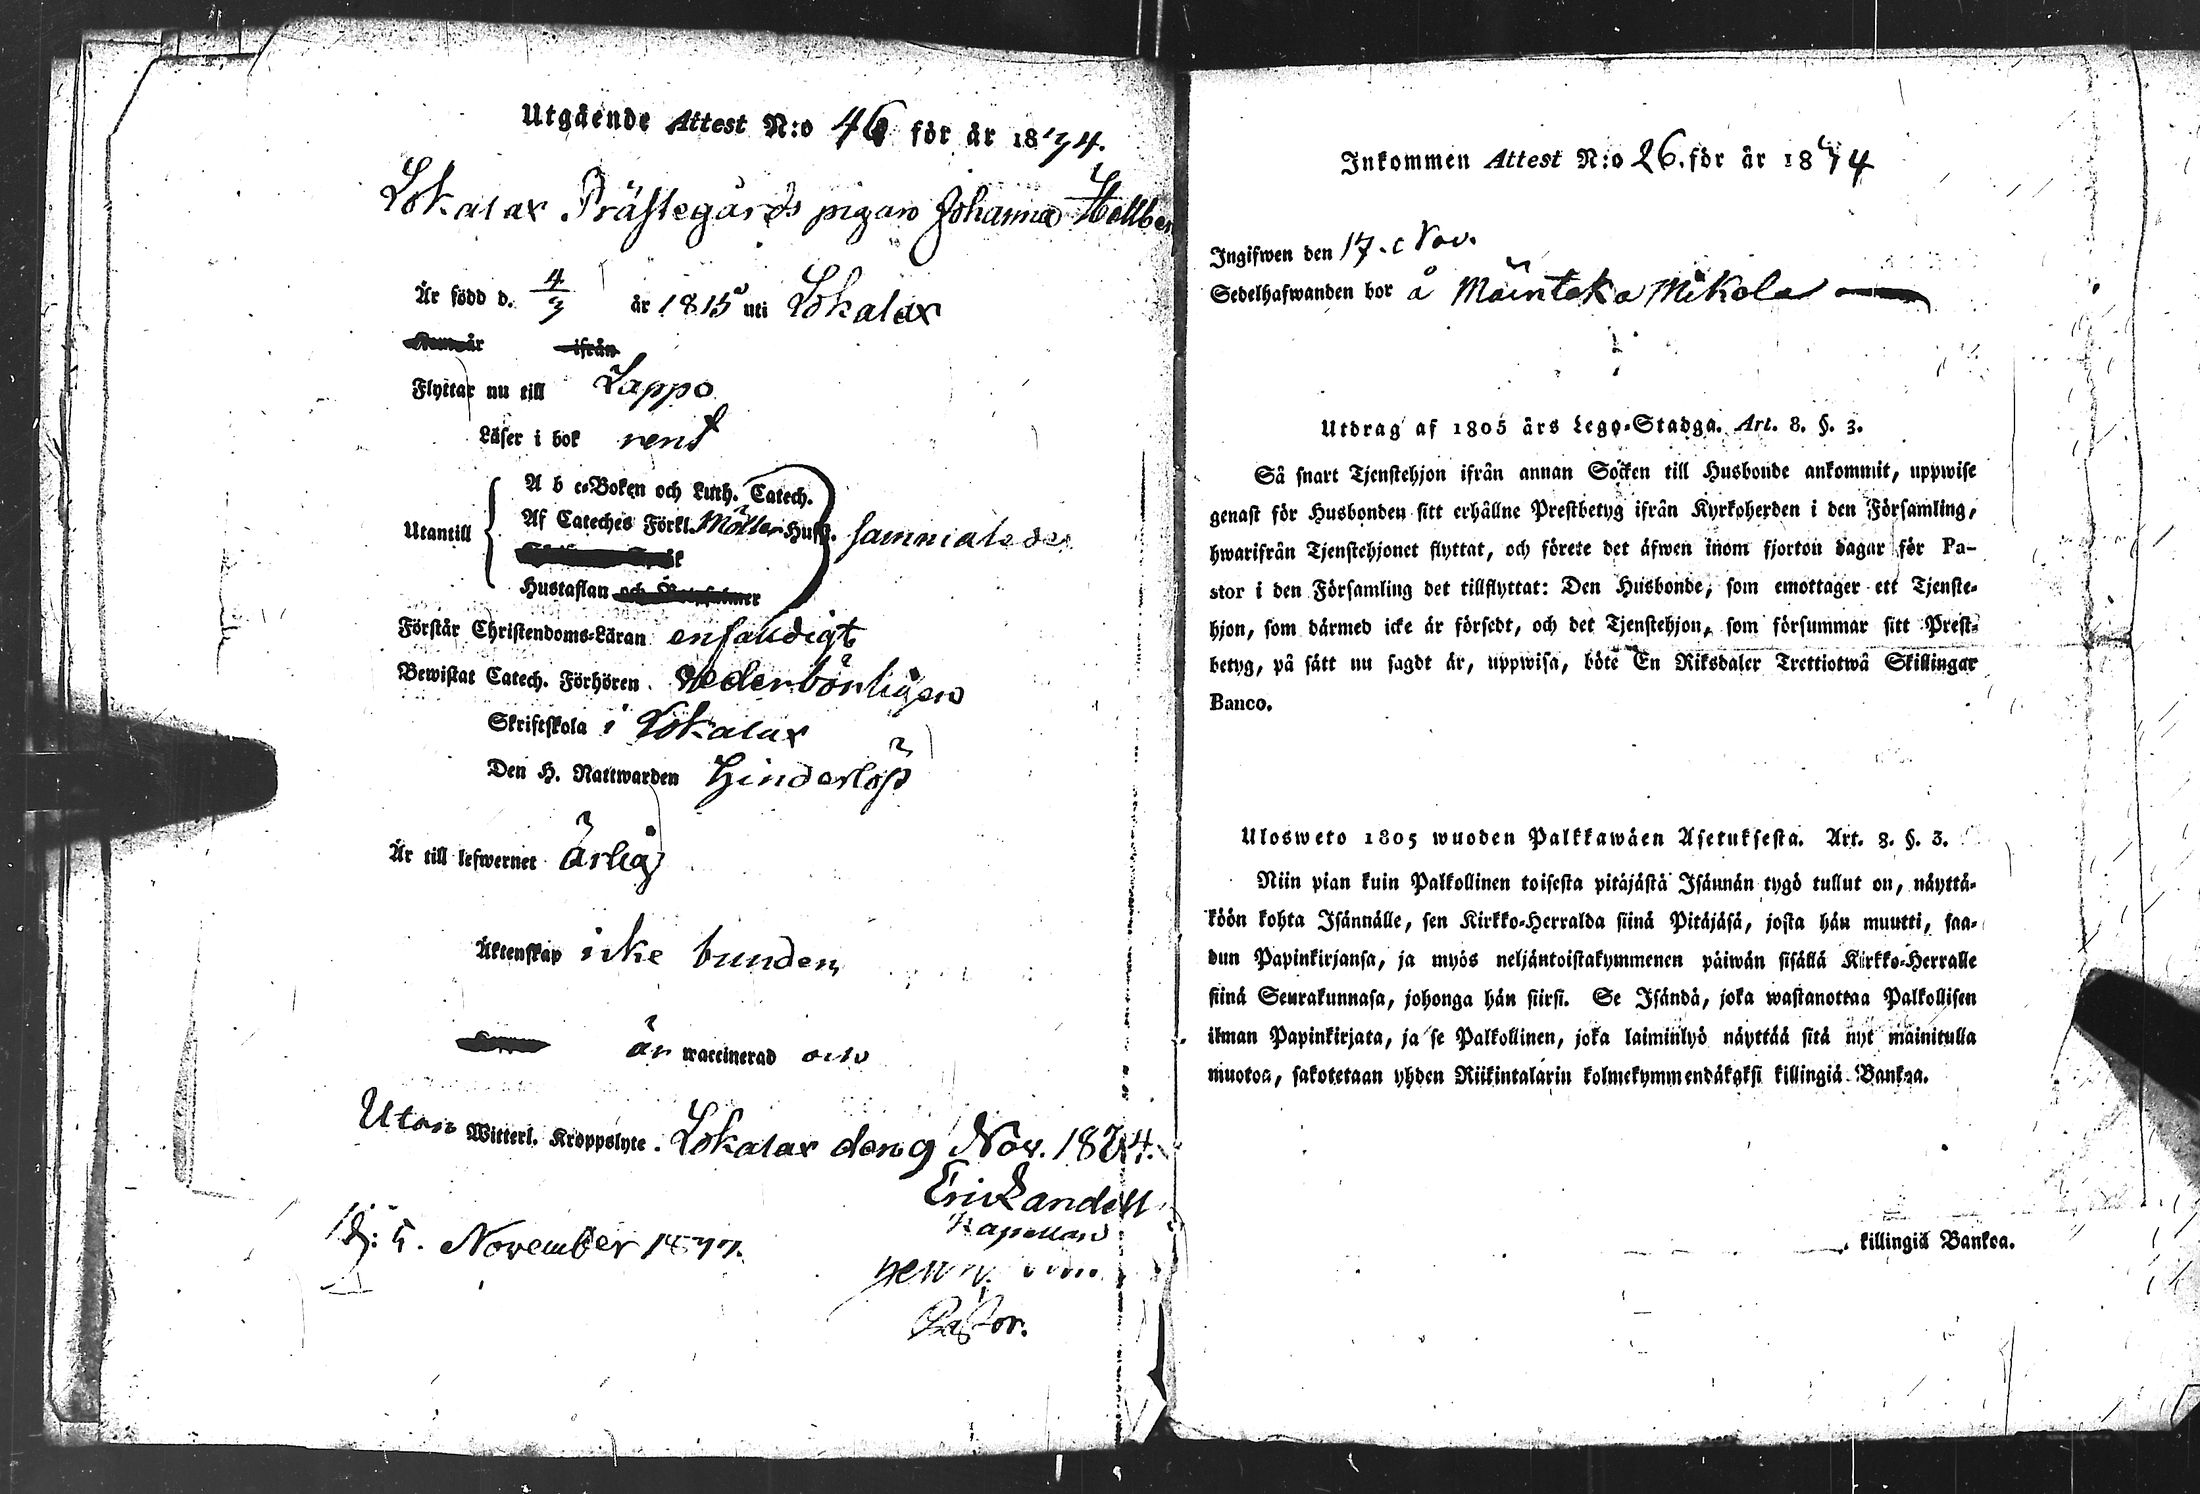 Utgående Attest N:o 46 för år 1874.
Lokalax Prästegårds pigan Johanna Hellber
Är född d. 4/9 år 1815 uti Lokalax
ifrån
Flyttar nu till Lappo
Läser i bok rent
A b c-Boken och Luth. Catech.
Utantill Af Cateches Förkl. Möller Huss. sammaledes
Hustaflan
Förstår Christendoms-Läran enfaldigt
Bewistat Catech. Förhören vederbörligen
Skriftskola i Lokalax
Den H. Nattwarden Hinderlöst
Är till lefwernet ärlig
Äktenskap icke bunden
är waccinerad och
Utan Witterl. Kroppslyte. Lokalax den 9 Nov. 1874.
Eric Landell
Kapellan
5. November 1877.
Pastor.
Inkommen Attest N:o 26. för år 1874
Ingifwen den 17. Nov.
Sedelhafwanden bor å Mäintaka Mikola
Utdrag af 1805 års Lego-Stadga. Art. 8. §. 3.
Så snart Tjenstehjon ifrån annan Socken till Husbonde ankommit, uppwise
genast för Husbonden sitt erhållne Prestbetyg ifrån Kyrkoherden i den Församling,
hwarifrån Tjenstehjonet flyttat, och förete det äfwen inom fjorton dagar för Pa-
stor i den Församling det tillflyttat: Den Husbonde, som emottager ett Tjenste-
hjon, som därmed icke är försedt, och det Tjenstehjon, som försummar sitt Prest-
betyg, på sätt nu sagdt är, uppwisa, böte En Riksdaler Trettiotwå Skillingar
Banco.
Ulosweto 1805 wuoden Palkkawäen Asetuksesta. Art. 8. §. 3.
Niin pian kuin Palkollinen toisesta pitäjästä Isännän tygö tullut on, näyttä-
köön kohta Isännälle, sen Kirkko-Herralda siinä Pitäjäsä, josta hän muutti, saa-
dun Papinkirjansa, ja myös neljäntoistakymmenen päiwän sisällä Kirkko-Herralle
siinä Seurakunnasa, johonga hän siirsi. Se Isändä, joka wastanottaa Palkollisen
ilman Papinkirjata, ja se Palkollinen, joka laiminlyö näyttää sitä nyt mainitulla
muotoa, sakotetaan yhden Riikintalarin kolmekymmendäkaksi killingiä Bankoa.
killingiä Bankoa.